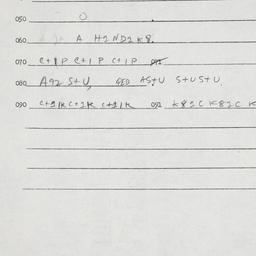 050 O
060 A H2 ND2 K8.
070 C+1P C+1P C+1P
080 A92 S+U, GEO AS+U S+US+U
090 C+1K C+1K C+1K 091 K81C K81C K